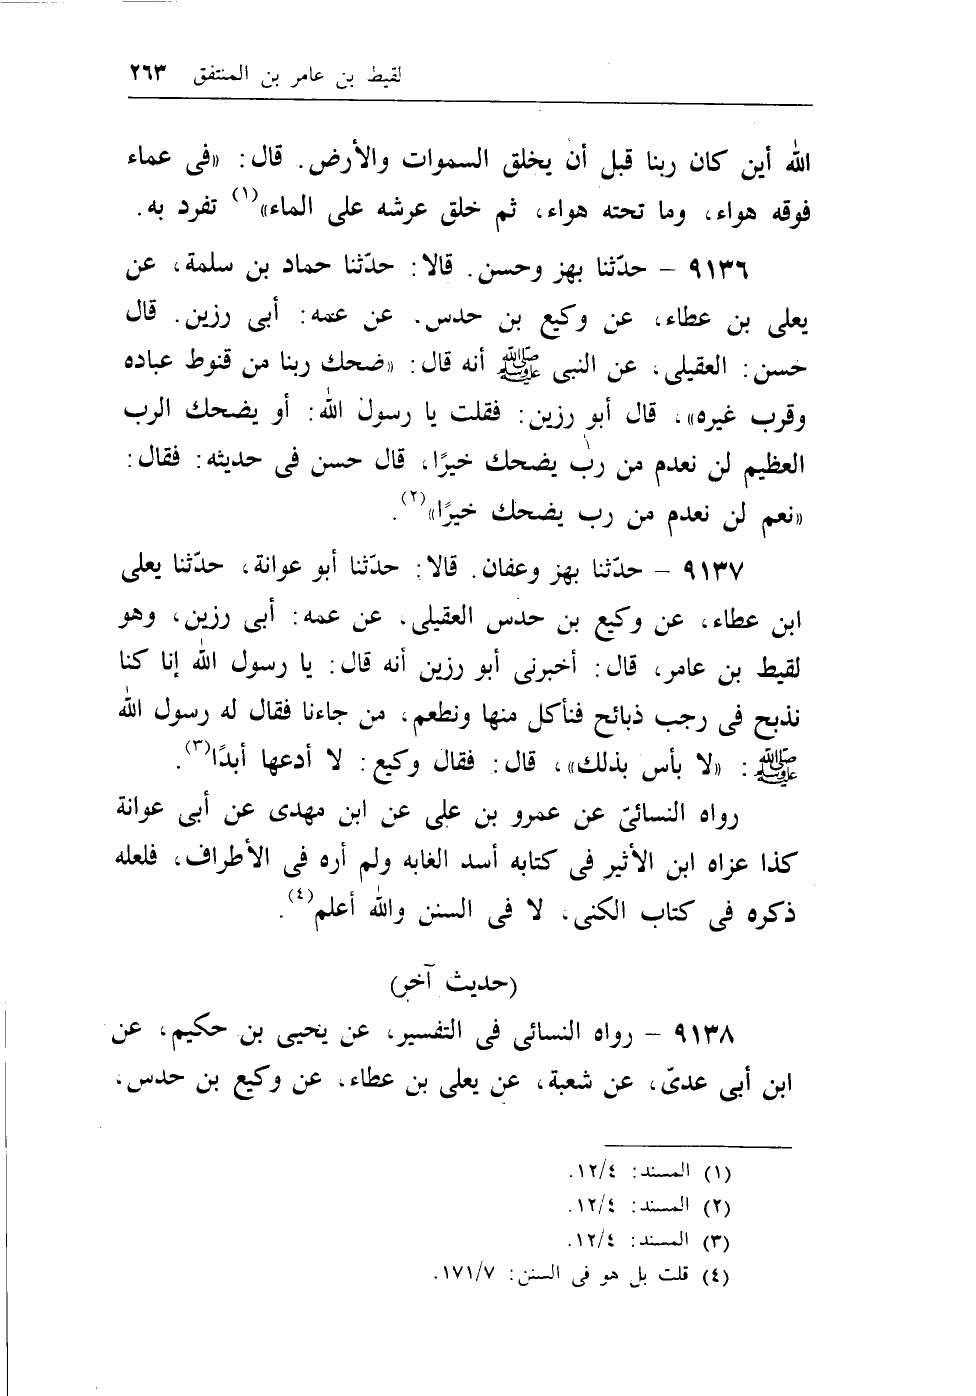 لقيط بن عامر بن المنتفق ٢٦٣
الله أين كان ربنا قبل أن يخلق السموات والأرض. قال: «فى عماء
فوقه هواء، وما تحته هواء، ثم خلق عرشه على الماء»(١) تفرد به.
٩١٣٦ - حدّثنا بهز وحسن. قالا: حدّثنا حماد بن سلمة، عن
يعلى بن عطاء، عن وكيع بن حدس. عن عمه: أبى رزين. قال
حسن: العقيلى، عن النبى ﷺ أنه قال: «ضحك ربنا من قنوط عباده
وقرب غيره»، قال أبو رزين: فقلت يا رسول الله: أو يضحك الرب
العظيم لن نعدم من رب يضحك خيرًا، قال حسن فى حديثه: فقال:
«نعم لن نعدم من رب يضحك خيرًا»(٢).
٩١٣٧ - حدّثنا بهز وعفان. قالا: حدّثنا أبو عوانة، حدّثنا يعلى
ابن عطاء، عن وكيع بن حدس العقيلى، عن عمه: أبى رزين، وهو
لقيط بن عامر، قال: أخبرنى أبو رزين أنه قال: يا رسول الله إنا كنا
نذبح فى رجب ذبائح فنأكل منها ونطعم، من جاءنا فقال له رسول الله
ﷺ: «لا بأس بذلك»، قال: فقال وكيع: لا أدعها أبدًا(٣).
رواه النسائىّ عن عمرو بن على عن ابن مهدى عن أبى عوانة
كذا عزاه ابن الأثير فى كتابه أسد الغابه ولم أره فى الأطراف، فلعله
ذكره فى كتاب الكنى، لا فى السنن والله أعلم(٤).
(حديث آخر)
٩١٣٨ - رواه النسائى فى التفسير، عن يحيى بن حكيم، عن
ابن أبى عدىّ، عن شعبة، عن يعلى بن عطاء، عن وكيع بن حدس،
(١) المسند: ١٢/٤.
(٢) المسند: ١٢/٤.
(٣) المسند: ١٢/٤.
(٤) قلت بل هو فى السنن: ١٧١/٧.